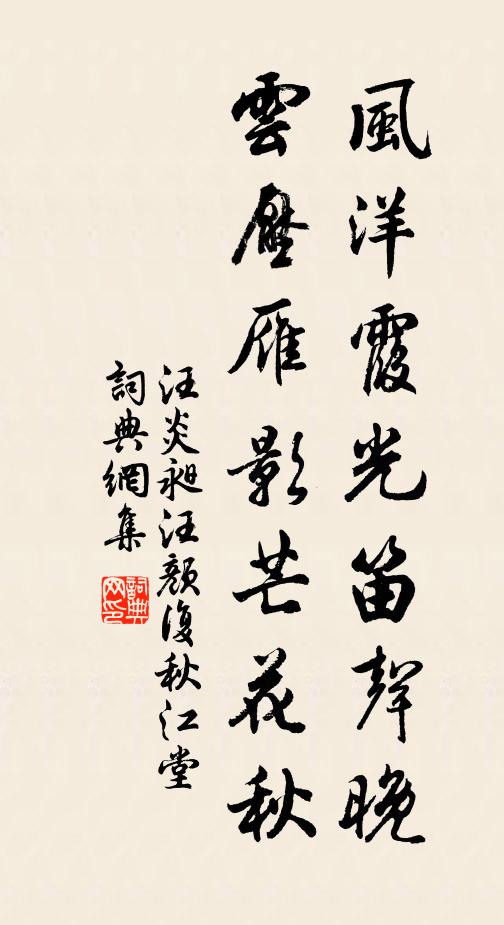 風洋霞光笛聲晚
雲壓雁影芒花秋
汪炎昶汪顏復秋江堂
詞典網集
詞典
网印